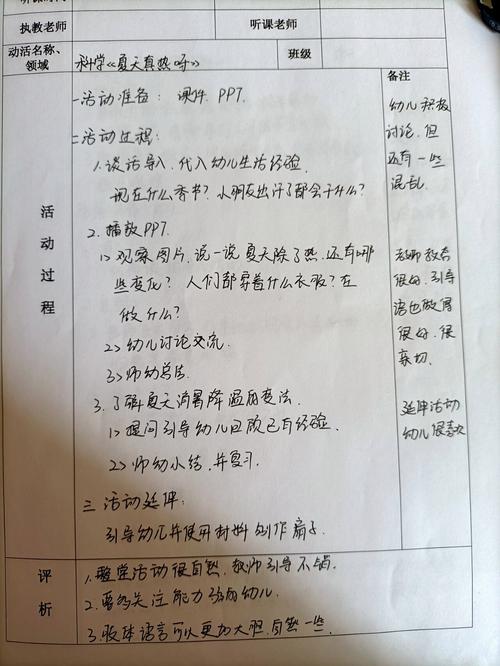 听课时间
执教老师 听课老师
动活名称、领域 科学《夏天真热呀》 班级
活动过程
一活动准备：课件.PPT.
二活动过程：
1.谈话导入.代入幼儿生活经验
现在什么季节？小朋友出汗了都会干什么？
2.播放PPT.
1>观察图片.说一说夏天除了热.还有哪
些变化？人们都穿着什么衣服？在
做什么？
2>幼儿讨论交流.
3>师幼总结
3.了解夏天消暑降温的方法.
1>提问引导幼儿回顾已有经验.
2>师幼小结.并复习.
三 活动延伸：
引导幼儿并使用材料创作扇子.
备注
幼儿积极
讨论.但
还有一些
混乱.
老师教育
很好.引导
语也做得
很好.很
亲切.
延伸活动
幼儿很喜欢
评析
1.整堂活动很自然.教师引导不错.
2.要多关注能力弱的幼儿.
3.肢体语言可以更加大胆.自然一些.